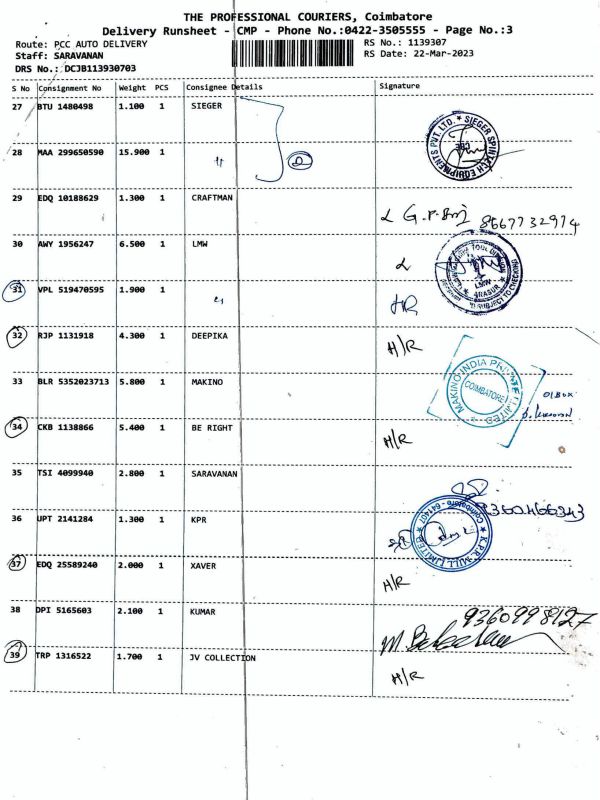 THE PROFESSIONAL COURIERS, Coimbatore
Delivery Runsheet - CMP - Phone No.:0422-3505555 - Page No.:3
Route: PCC AUTO DELIVERY RS No.: 1139307
Staff: SARAVANAN RS Date: 22-Mar-2023
DRS No.: DCJB113930703
S No Consignment No Weight PCS Consignee Details Signature
27 BTU 1480498 1.100 1 SIEGER
SIEGER SPINTECH EQUIPMENTS PVT. LTD. CBE
28 MAA 299650590 15.900 1 "
29 EDQ 10188629 1.300 1 CRAFTMAN
8667732974
30 AWY 1956247 6.500 1 LMW
LMW ARASUR SUBJECT TO CHECKING
31 VPL 519470595 1.900 1 "
32 RJP 1131918 4.300 1 DEEPIKA H/R
33 BLR 5352023713 5.800 1 MAKINO
MAKINO INDIA PRIVATE LIMITED COIMBATORE
01 Box
34 CKB 1138866 5.400 1 BE RIGHT H/R
35 TSI 4099940 2.800 1 SARAVANAN
9360466343
36 UPT 2141284 1.300 1 KPR
K.P.R. MILL LIMITED Coimbatore - 641407
37 EDQ 25589240 2.000 1 XAVER H/R
38 DPI 5165603 2.100 1 KUMAR
9360998127
39 TRP 1316522 1.700 1 JV COLLECTION H/R